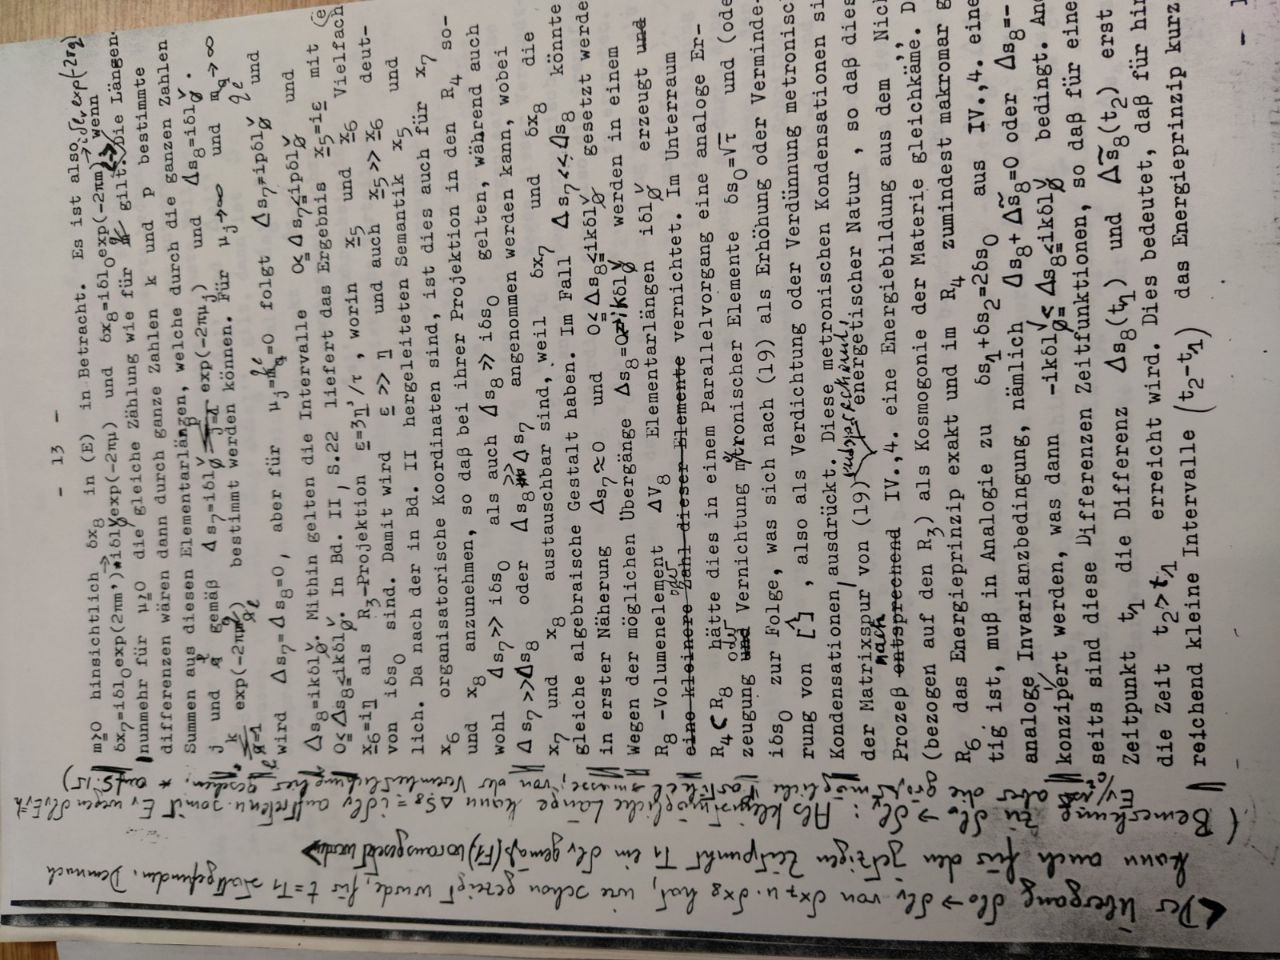 - 13 -
m≥0 hinsichtlich δx8 in (E) in Betracht. Es ist also
δx7=iδl0exp(2πm') iδl exp(-2πμ) und δx8=iδl0exp(-2πm) wenn
nunmehr für μ≥0 die gleiche Zählung wie für gilt. Die Längen
differenzen wären dann durch ganze Zahlen k und p bestimmte
Summen aus diesen Elementarlängen, welche durch die ganzen Zahlen
j und gemäß Δs7=iδl exp(-2πμj) und Δs8=iδl
exp(-2πm ) bestimmt werden können. Für μj→∞ und m →∞
wird Δs7=Δs8=0, aber für μj= =0 folgt Δs7=ipδl und
Δs8=ikδl. Mithin gelten die Intervalle 0≤Δs7≤ipδl und
0≤Δs8≤ikδl. In Bd. II, S.22 liefert das Ergebnis x5=iε mit
x6=iη als R3-Projektion ε=3η'/τ, worin x5 und x6 Vielfach
von iδs0 sind. Damit wird ε >> η und auch x5 >> x6 deut-
lich. Da nach der in Bd. II hergeleiteten Semantik x5 und
x6 organisatorische Koordinaten sind, ist dies auch für x7
und x8 anzunehmen, so daß bei ihrer Projektion in den R4 so-
wohl Δs7 >> iδs0 als auch Δs8 >> iδs0 gelten, während auch
Δs7 >>Δs8 oder Δs8 >> Δs7 angenommen werden kann, wobei
x7 und x8 austauschbar sind, weil δx7 und δx8 die
gleiche algebraische Gestalt haben. Im Fall Δs7 << Δs8 könnte
in erster Näherung Δs7≈0 und 0≤Δs8≤ikδl gesetzt werde
Wegen der möglichen Übergänge Δs8=0→ikδl werden in einem
R8 -Volumenelement ΔV8 Elementarlängen iδl erzeugt und
eine kleinere Zahl dieser Elemente vernichtet. Im Unterraum
oder
R4 < R8 hätte dies in einem Parallelvorgang eine analoge Er-
zeugung und oder Vernichtung metronischer Elemente δs0=√τ und (ode
iδs0 zur Folge, was sich nach (19) als Erhöhung oder Verminde-
rung von [ ] , also als Verdichtung oder Verdünnung metronisc
Kondensationen ausdrückt. Diese metronischen Kondensationen si
der Matrixspur von (19) entsprechend, energetischer Natur , so daß dies
Prozeß entsprechend nach IV.,4. eine Energiebildung aus dem „Nic
(bezogen auf den R3) als Kosmogonie der Materie gleichkäme. D
R6 das Energieprinzip exakt und im R4 zumindest makromar g
tig ist, muß in Analogie zu δs1+δs2=2δs0 aus IV.,4. eine
analoge Invarianzbedingung, nämlich Δs8+Δs̃8=0 oder Δs8=-
konzipiert werden, was dann -ikδl≤ Δs8≤ikδl bedingt. And
seits sind diese Differenzen Zeitfunktionen, so daß für eine
Zeitpunkt t1 die Differenz Δs8(t1) und Δs̃8(t2) erst
die Zeit t2>t1 erreicht wird. Dies bedeutet, daß für hin
reichend kleine Intervalle (t2-t1) das Energieprinzip kurz
(Bemerkung zu : Als kleinstmögliche Länge kann Δs8=iδl auftreten u. somit
aber die größtmögliche , von der
kann auch für den jetzigen Zeitpunkt T1 ein δl gemäß (F1) vorausgesetzt werden
Der Übergang δl0→δl von δx7 u. δx8 hat, wie schon gezeigt wurde, für t=T1 stattgefunden. Demnach